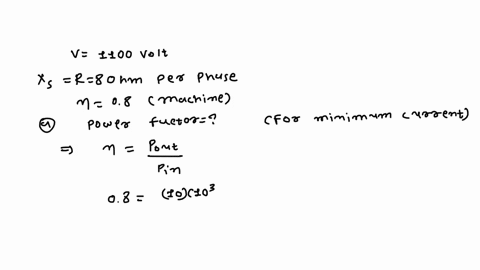 V= 1100 volt
Xs = R = 80hm per phase
η = 0.8 (machine)
a) power factor=? (for minimum current)
⇒ η = Pout / Pin
0.8 = (10)(10³